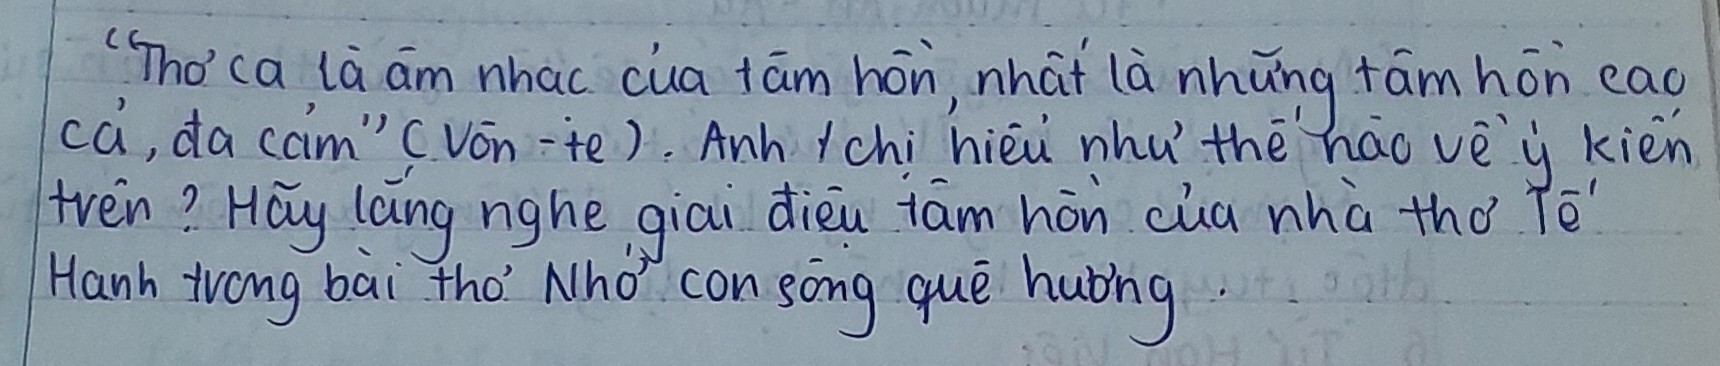 "Thơ ca là âm nhạc của tâm hồn, nhất là những tâm hồn cao
cả, đa cảm" (Vôn-te). Anh/chị hiểu như thế nào về ý kiến
trên? Hãy lắng nghe giai điệu tâm hồn của nhà thơ Tế
Hanh trong bài thơ Nhớ con sông quê hương.